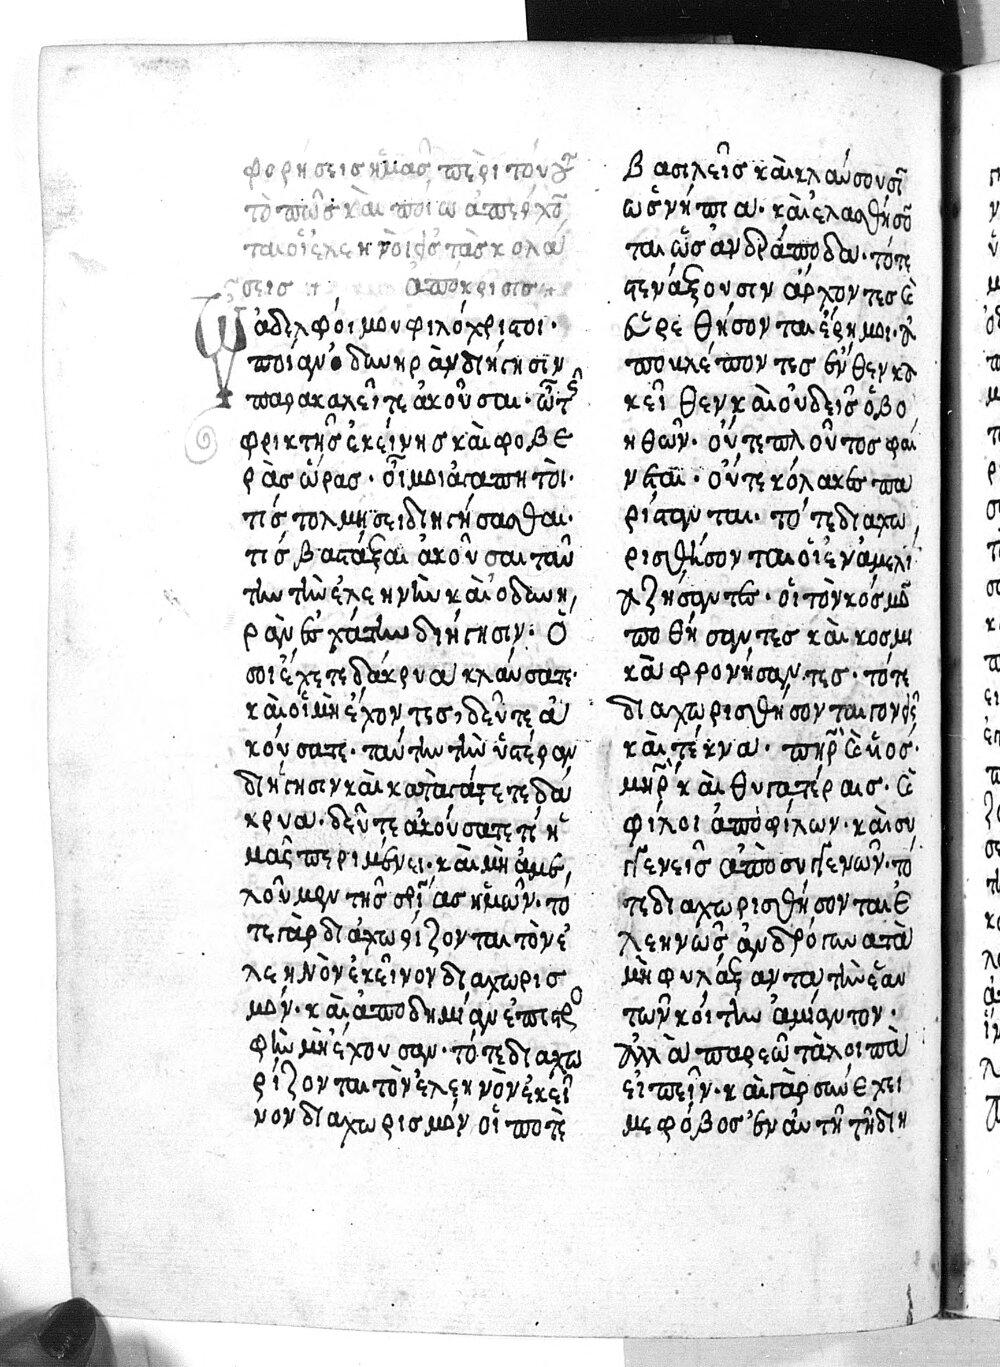 φορήσεις ἡμᾶς περὶ τούτου
τὸ πῶς καὶ ποίω ἀπέρχον
ται οἱ ἐλεηνοὶ εἰς τὰς κολά
σεις ἀπόκρισις
Ὦ ἀδελφοί μου φιλόχριστοι·
ποίαν ὀδωηρὰν διήγησιν
παρακαλεῖτε ἀκοῦσαι· ὦ τῆς
φρικτῆς ἐκείνης καὶ φοβε
ρὰς ὥρας· οἴμοι ἀγαπητοί·
τίς τολμήσει διηγήσασθαι·
τίς βαστάξαι ἀκοῦσαι ταύ
την τὴν ἐλεηνὴν καὶ ὀδωη
ρὰν ἐσχάτην διήγησιν· Ὅ
σοι ἔχετε δάκρυα κλαύσατε·
καὶ οἱ μὴ ἔχοντες, δεῦτε ἀ
κούσατε· ταύτην τὴν ὑστέραν
διήγησιν καὶ καταγάγετε δά
κρυα· δεῦτε ἀκούσατε τί ἡ
μᾶς περιμένει· καὶ μὴ ἀμε
λοῦμεν τῆς σρίας ἡμῶν· τό
τε γὰρ διαχωρίζονται τὸν ἐ
λεηνὸν ἐκεῖνον διαχωρισ
μόν· καὶ ἀποδημίαν ἐπιστρο
φὴν μὴ ἔχουσαν· τότε διαχω
ρίζονται τὸν ἐλεηνὸν ἐκεῖ
νον διαχωρισμόν οἵ ποτὲ
βασιλεῖς καὶ κλαύσουσι
ὡς νήπια· καὶ ἐλασθήσον
ται ὡς ἀνδράποδα· τότε
στενάξουσιν ἄρχοντες καὶ
εὑρεθήσονται ἔρημοι· ἀ
ποβλέποντες ἔνθεν κα
κεῖθεν καὶ οὐδεὶς ὁ βο
ηθῶν· οὔτε πλοῦτος φαί
νεται· οὔτε κόλακες πα
ρίστανται· τότε διαχω
ρισθήσονται οἱ ἐν ἀμελί
α ζήσαντες· οἱ τὸν κόσμον
ποθήσαντες καὶ κοσμι
κὰ φρονήσαντες· τότε
διαχωρισθήσονται γονεῖς
καὶ τέκνα· πηρ καὶ υἱός·
μηρ καὶ θυγατέραις· καὶ
φίλοι ἀπὸ φίλων· καὶ συ
γγενεῖς ἀπὸ συγγενῶν· τό
τε διαχωρισθήσονται ἐ
λεηνῶς ἀνδρόγυνα τὰ
μὴ φυλάξαντα τὴν ἑαυ
τῶν κοίτην ἀμίαντον·
ἀλλὰ παρεῶ τὰ λοιπὰ
εἰπεῖν· καὶ γὰρ συνέχει
με φόβος ἐν αὐτῆ τῆ διη